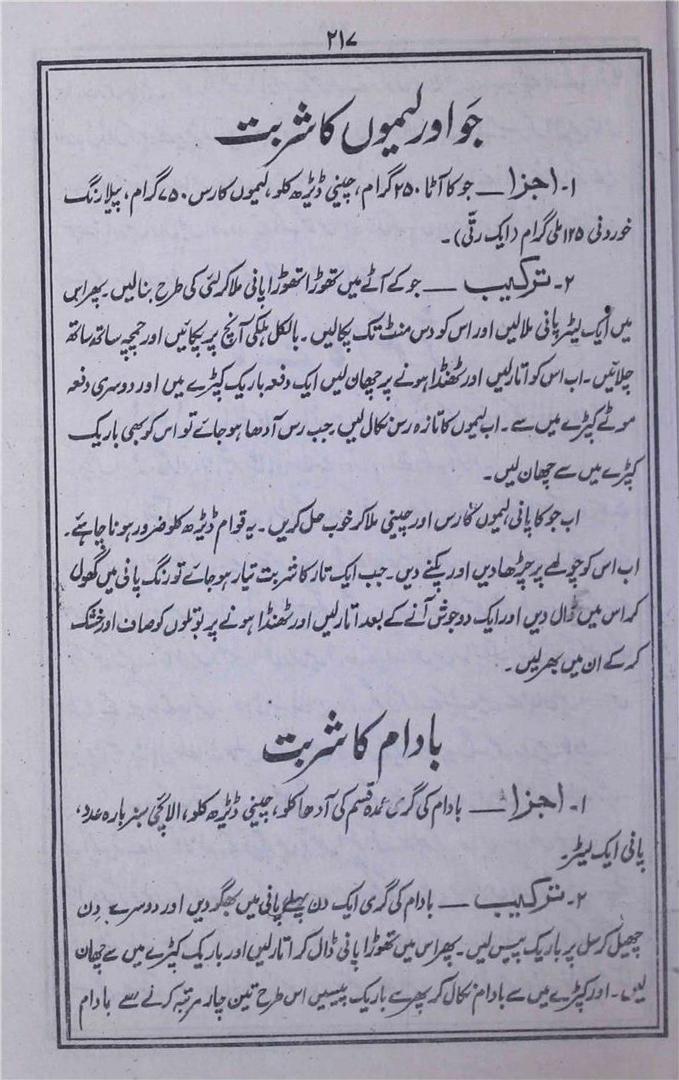 ۲۱۷
جَو اور لیموں کا شربت
۱۔ اجزا — جو کا آٹا ۲۵۰ گرام، چینی ڈیڑھ کلو، لیموں کا رس ۷۵۰ گرام، پیلا رنگ
خوردنی ۱۲۵ ملی گرام (ایک رتّی)۔
۲۔ ترکیب — جو کے آٹے میں تھوڑا تھوڑا پانی ملا کر لئی کی طرح بنا لیں۔ پھر اس
میں ایک لیٹر پانی ملا لیں اور اس کو دس منٹ تک پکالیں۔ بالکل ہلکی آنچ پر پکائیں اور چمچہ ساتھ ساتھ
چلائیں۔ اب اس کو اتار لیں اور ٹھنڈا ہونے پر چھان لیں ایک دفعہ باریک کپڑے میں اور دوسری دفعہ
موٹے کپڑے میں سے۔ اب لیموں کا تازہ رس نکال لیں۔ جب رس آدھا ہو جائے تو اس کو بھی باریک
کپڑے میں سے چھان لیں۔
اب جو کا پانی، لیموں کا رس اور چینی ملا کر خوب حل کریں۔ یہ قوام ڈیڑھ کلو ضرور ہونا چاہئے۔
اب اس کو چولھے پر چڑھا دیں اور پکنے دیں۔ جب ایک تار کا شربت تیار ہو جائے تو رنگ پانی میں گھول
کر اس میں ڈال دیں اور ایک دو جوش آنے کے بعد اتار لیں اور ٹھنڈا ہونے پر بوتلوں کو صاف اور خشک
کر کے ان میں بھر لیں۔
بادام کا شربت
۱۔ اجزا — بادام کی گری عمدہ قسم کی آدھا کلو، چینی ڈیڑھ کلو، الائچی سبز بارہ عدد،
پانی ایک لیٹر۔
۲۔ ترکیب — بادام کی گری ایک دن پہلے پانی میں بھگو دیں اور دوسرے دن
چھیل کر سل پر باریک پیس لیں۔ پھر اس میں تھوڑا پانی ڈال کر اتار لیں اور باریک کپڑے میں سے چھان
لیں۔ اور کپڑے میں سے بادام نکال کر پھر سے باریک پیسیں اس طرح تین چار مرتبہ کرنے سے بادام